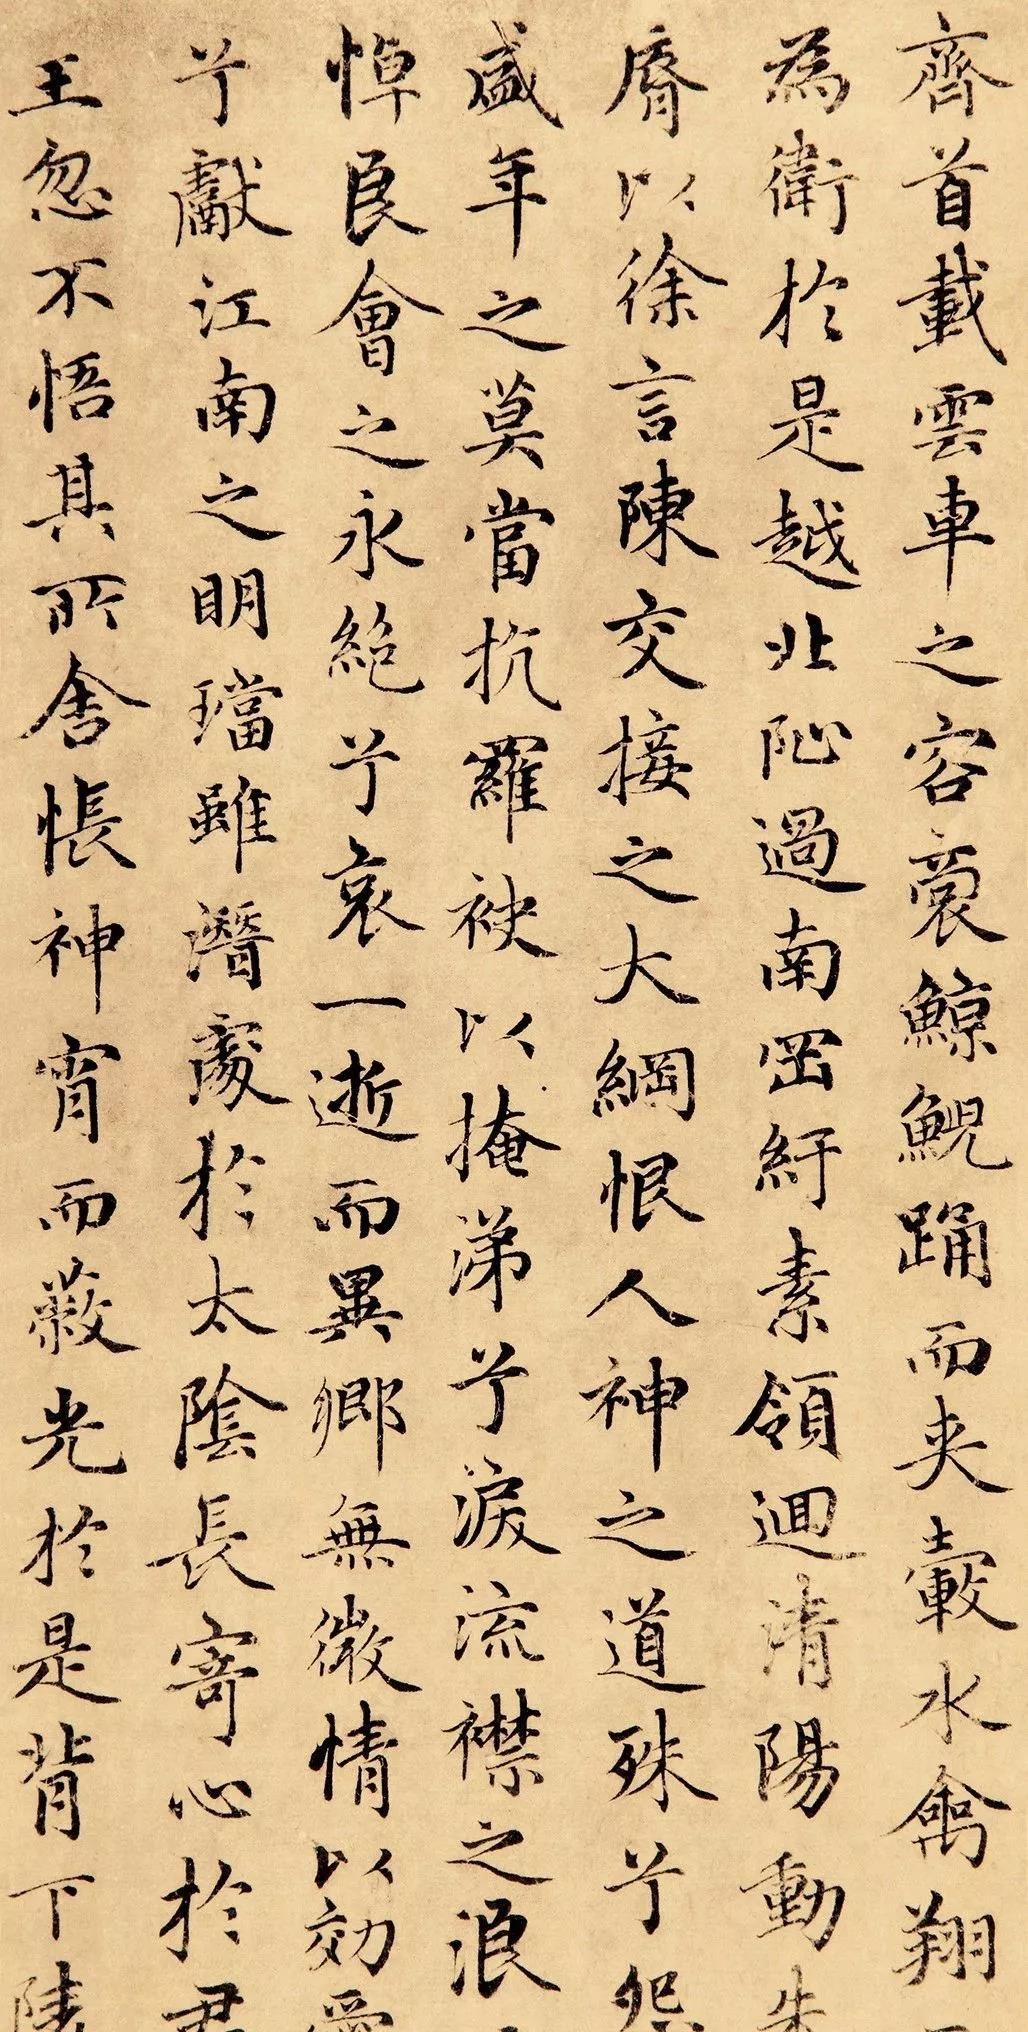 齊首載雲車之容裔鯨鯢踴而夾轂水禽翔
為衛於是越北阯過南岡紆素領迴清陽動朱
脣以徐言陳交接之大綱恨人神之道殊兮怨
盛年之莫當抗羅袂以掩涕兮淚流襟之浪
悼良會之永絕兮哀一逝而異鄉無微情以効愛
兮獻江南之明璫雖潛處於太陰長寄心於君
王忽不悟其所舍悵神宵而蔽光於是背下陵